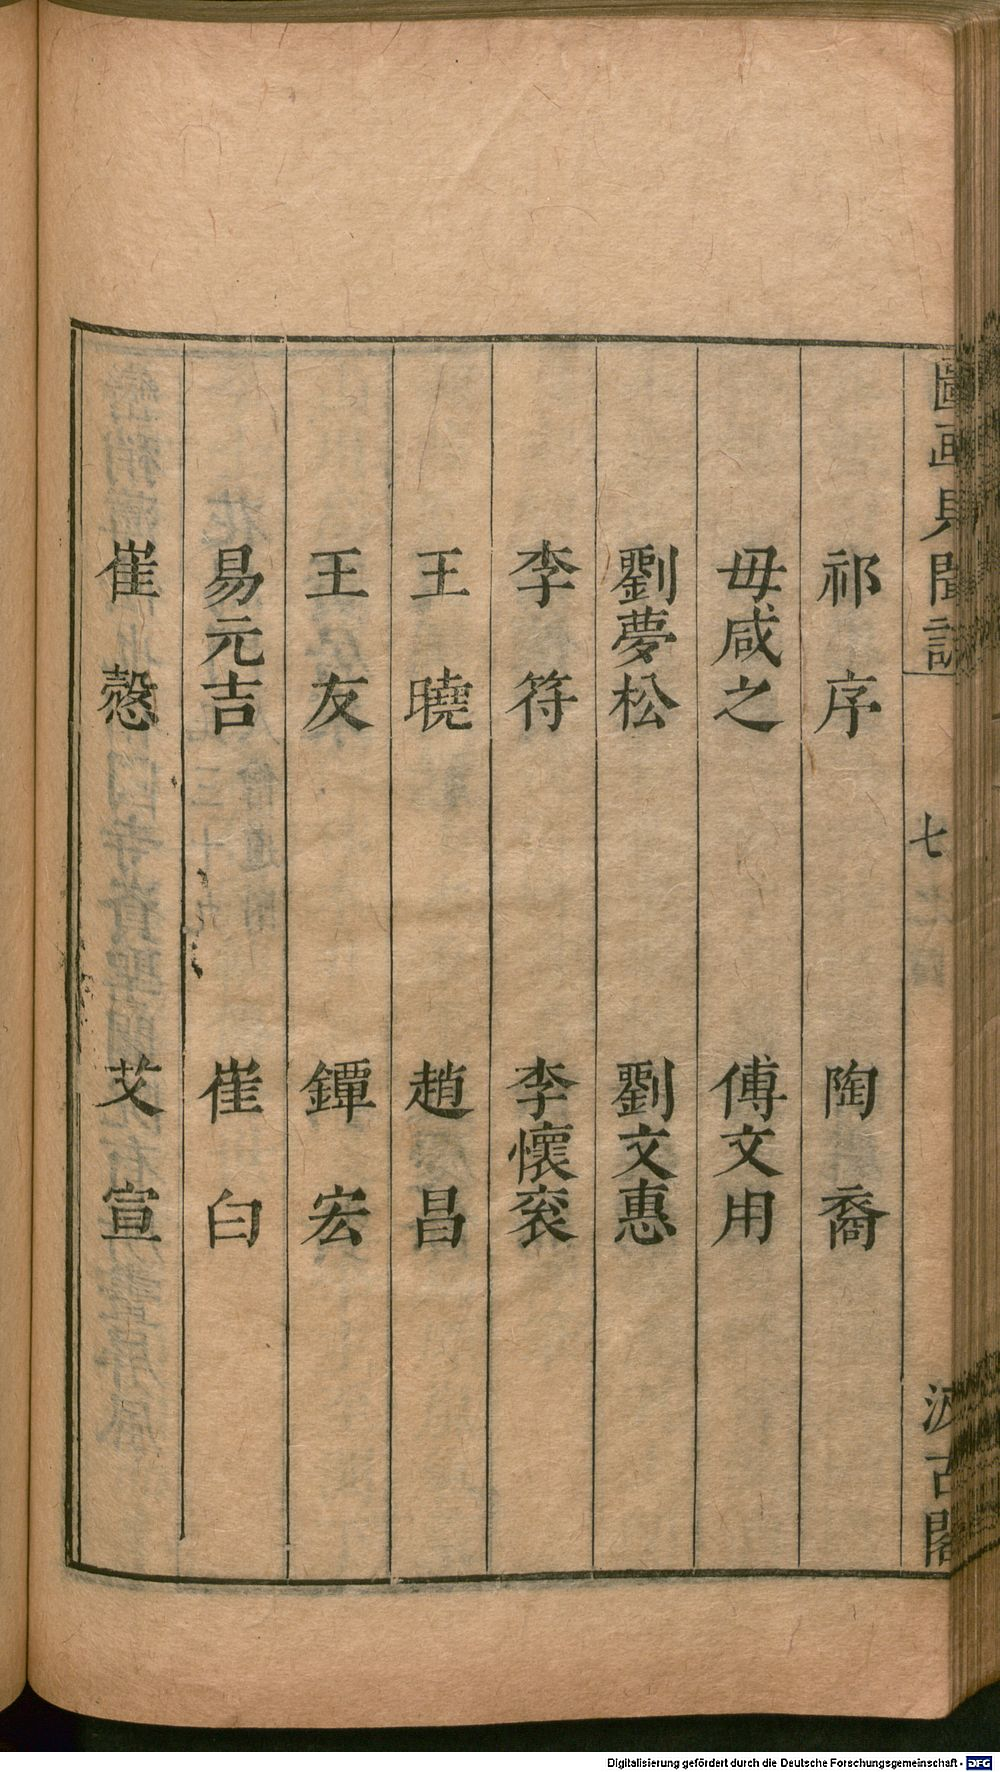 圖画見聞誌 七 汲古閣
祁 序 陶 裔
毋咸之 傅文用
劉夢松 劉文惠
李 符 李懷袞
王 曉 趙 昌
王 友 鐔 宏
易元吉 崔 白
崔 慤 艾 宣
Digitalisierung gefördert durch die Deutsche Forschungsgemeinschaft - DFG